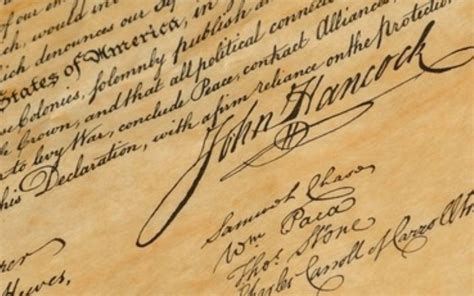 which denounces our Sep
States of America, in
Colonies, solemnly publish and
Crown, and that all political connec
to levy War, conclude Peace, contract Alliances,
his Declaration, with a firm reliance on the protection
John Hancock
Samuel Chase
Wm Paca
Thos Stone
Charles Carroll of Carrollto